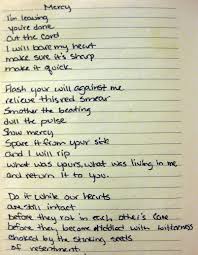 Mercy
I'm leaving
you're done
Cut the Cord
I will bare my heart
make sure it's sharp
make it quick
Flash your will against me
relieve this red smear
Smother the beating
dull the pulse
Show mercy
Spare it from your side
and I will rip
what was yours, what was living in me
and return it to you.
Do it while our hearts
are still intact
before they rot in each other's care
before they become afflicted with bitterness
choked by the stinking seeds
of resentment